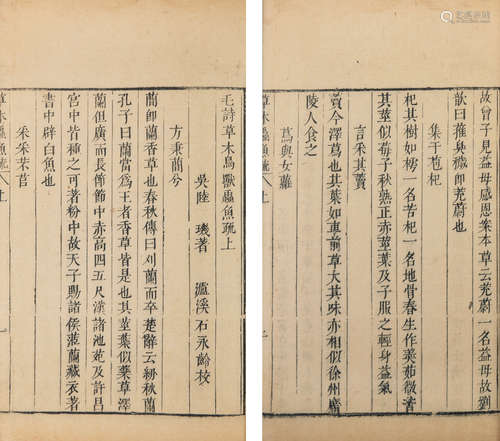 故曾子見益感恩案本草云茺蔚一名益母故劉
歆曰蓷臭穢即茺蔚也
集于苞杞
杞其樹如樗一名苦杞一名地骨春生作羹茹微苦
其莖似莓子秋熟正赤莖葉及子服之輕身益氣
言采其藚
藚今澤蔿也其葉如車前草大其味亦相似徐州廣
陵人食之
蔦與女蘿
草木蟲魚疏 上
毛詩草木鳥獸蟲魚疏上
吳 陸 璣著 瀘溪 石永齡校
方秉蕑兮
蕑即蘭香草也春秋傳曰刈蘭而卒楚辭云紉秋蘭
孔子曰蘭當為王者香草皆是也其莖葉似藥草澤
蘭但廣而長節節中赤高四五尺漢諸池苑及許昌
宮中皆種之可著粉中故天子賜諸侯茝蘭藏衣著
書中辟白魚也
采采芣苢
草木蟲魚疏 上 一